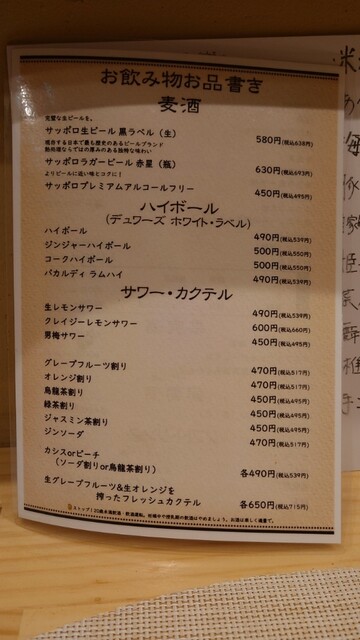 お飲み物お品書き
麦酒
完璧な生ビールを。
サッポロ生ビール 黒ラベル（生） 580円(税込638円)
現存する日本で最も歴史のあるビールブランド
熱処理ならではの厚みのある独特な味わい
サッポロラガービール 赤星（瓶） 630円(税込693円)
よりビールに近い味とコクに！
サッポロプレミアムアルコールフリー 450円(税込495円)
ハイボール
(デュワーズ ホワイト・ラベル)
ハイボール 490円(税込539円)
ジンジャーハイボール 500円(税込550円)
コークハイボール 500円(税込550円)
バカルディ ラムハイ 490円(税込539円)
サワー・カクテル
生レモンサワー 490円(税込539円)
クレイジーレモンサワー 600円(税込660円)
男梅サワー 450円(税込495円)
グレープフルーツ割り 470円(税込517円)
オレンジ割り 470円(税込517円)
烏龍茶割り 450円(税込495円)
緑茶割り 450円(税込495円)
ジャスミン茶割り 450円(税込495円)
ジンソーダ 470円(税込517円)
カシスorピーチ
（ソーダ割りor烏龍茶割り） 各490円(税込539円)
生グレープフルーツ&生オレンジを
搾ったフレッシュカクテル 各650円(税込715円)
ストップ！20歳未満飲酒・飲酒運転。妊娠中や授乳期の飲酒はやめましょう。お酒は楽しく適量で。
米